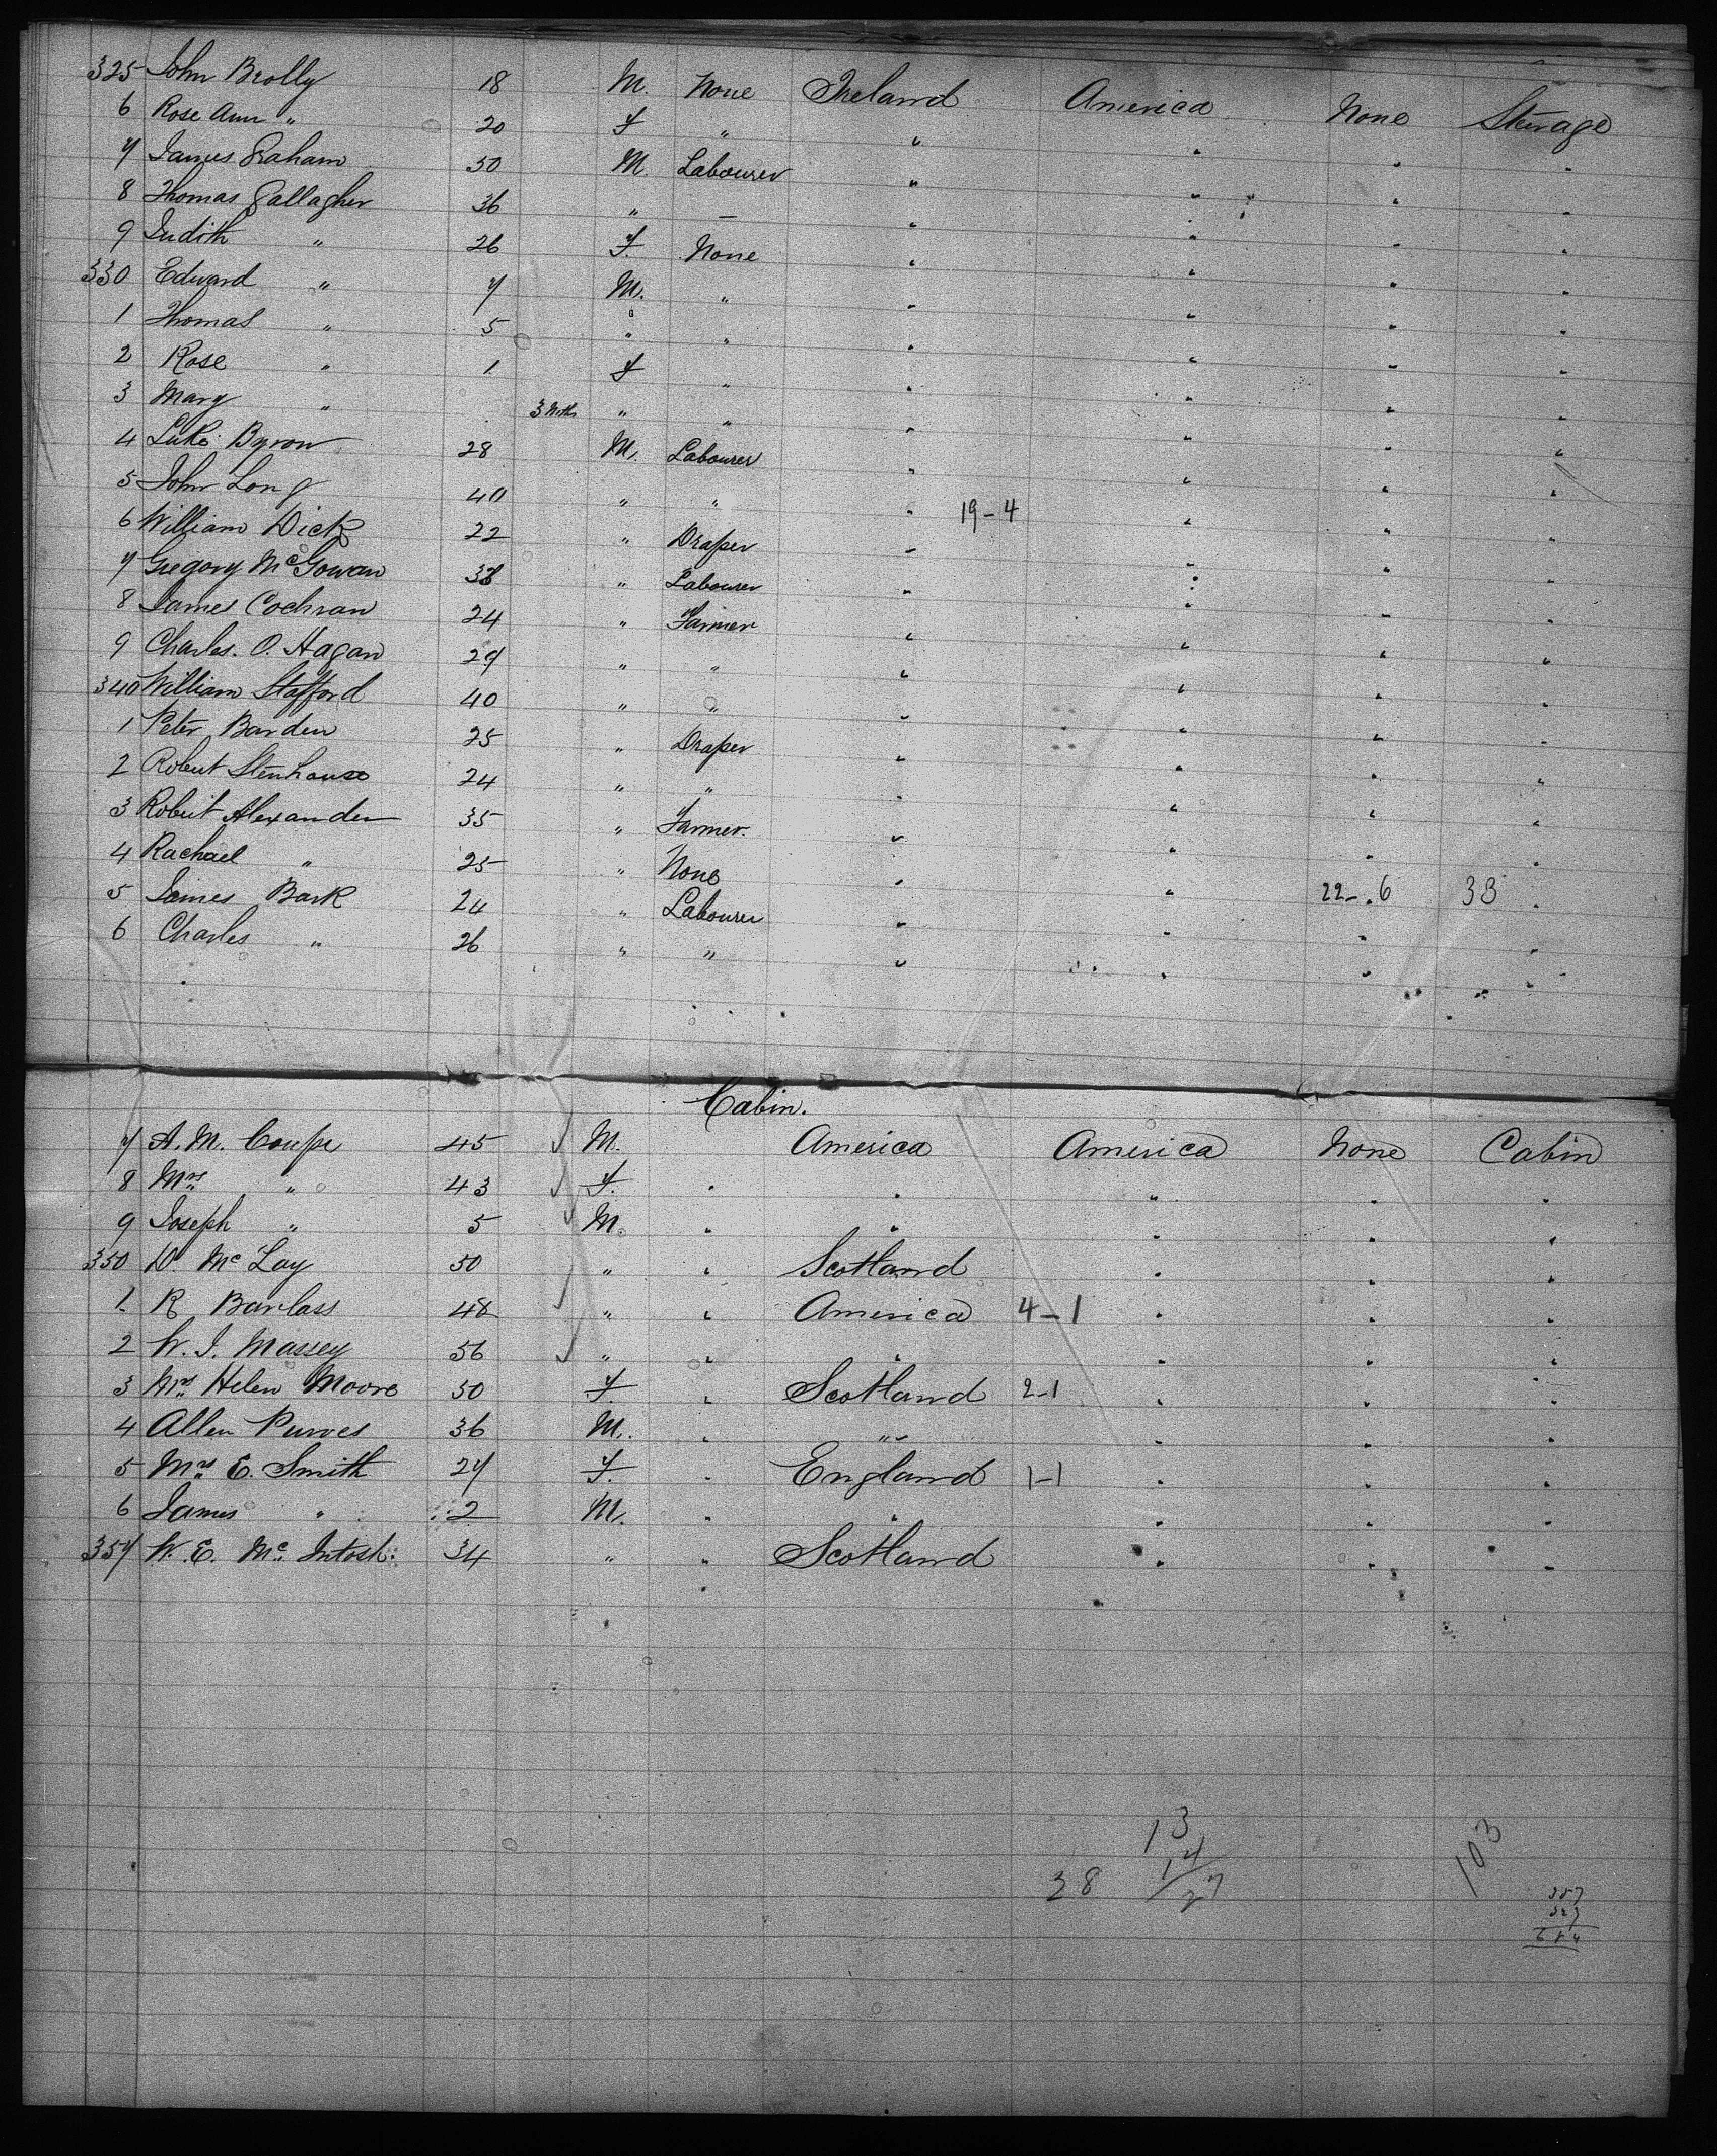 325 John Brolly 18 M. None Ireland America None Sterage
6 Rose Ann " 20 F " " " " "
7 James Graham 50 M. Labourer " " " "
8 Thomas Gallagher 36 " — " " " "
9 Judith " 26 F. None " " " "
330 Edward " 7 M. " " " " "
1 Thomas " 5 " " " " " "
2 Rose " 1 F " " " " "
3 Mary " 3 Mths " " " " " "
4 Luke Byron 28 M. Labourer " " " "
5 John Long 40 " " " 19-4 " " "
6 William Dick 22 " Draper " " " "
7 Gregory McGowan 38 " Labourer " " " "
8 James Cochran 24 " Farmer " " " "
9 Charles. O. Hagan 27 " " " " " "
340 William Stafford 40 " " " " " "
1 Peter Barden 25 " Draper " " " "
2 Robert Stenhouse 24 " " " " " "
3 Robert Alexander 35 " Farmer. " " " "
4 Rachael " 25 " None " " " "
5 James Bark 24 " Labourer " " 22-6 33 "
6 Charles " 26 " " " " " "
Cabin.
7 A. M. Coupe 45 M. America America None Cabin
8 Mrs " 43 F. " " " " "
9 Joseph " 5 M. " " " " "
350 D. McLay 50 " " Scotland " " "
1 R Barlass 48 " " America 4-1 " " "
2 W. J. Massey 56 " " " " " "
3 Mrs Helen Moore 30 F. " Scotland 2-1 " " "
4 Allen Purves 36 M. " " " " "
5 Mrs E. Smith 27 F. " England 1-1 " " "
6 James " 2 M. " " " " "
357 W. E. Mc Intosh. 34 " " Scotland " " "
13
14
38 27
103
357
327
684